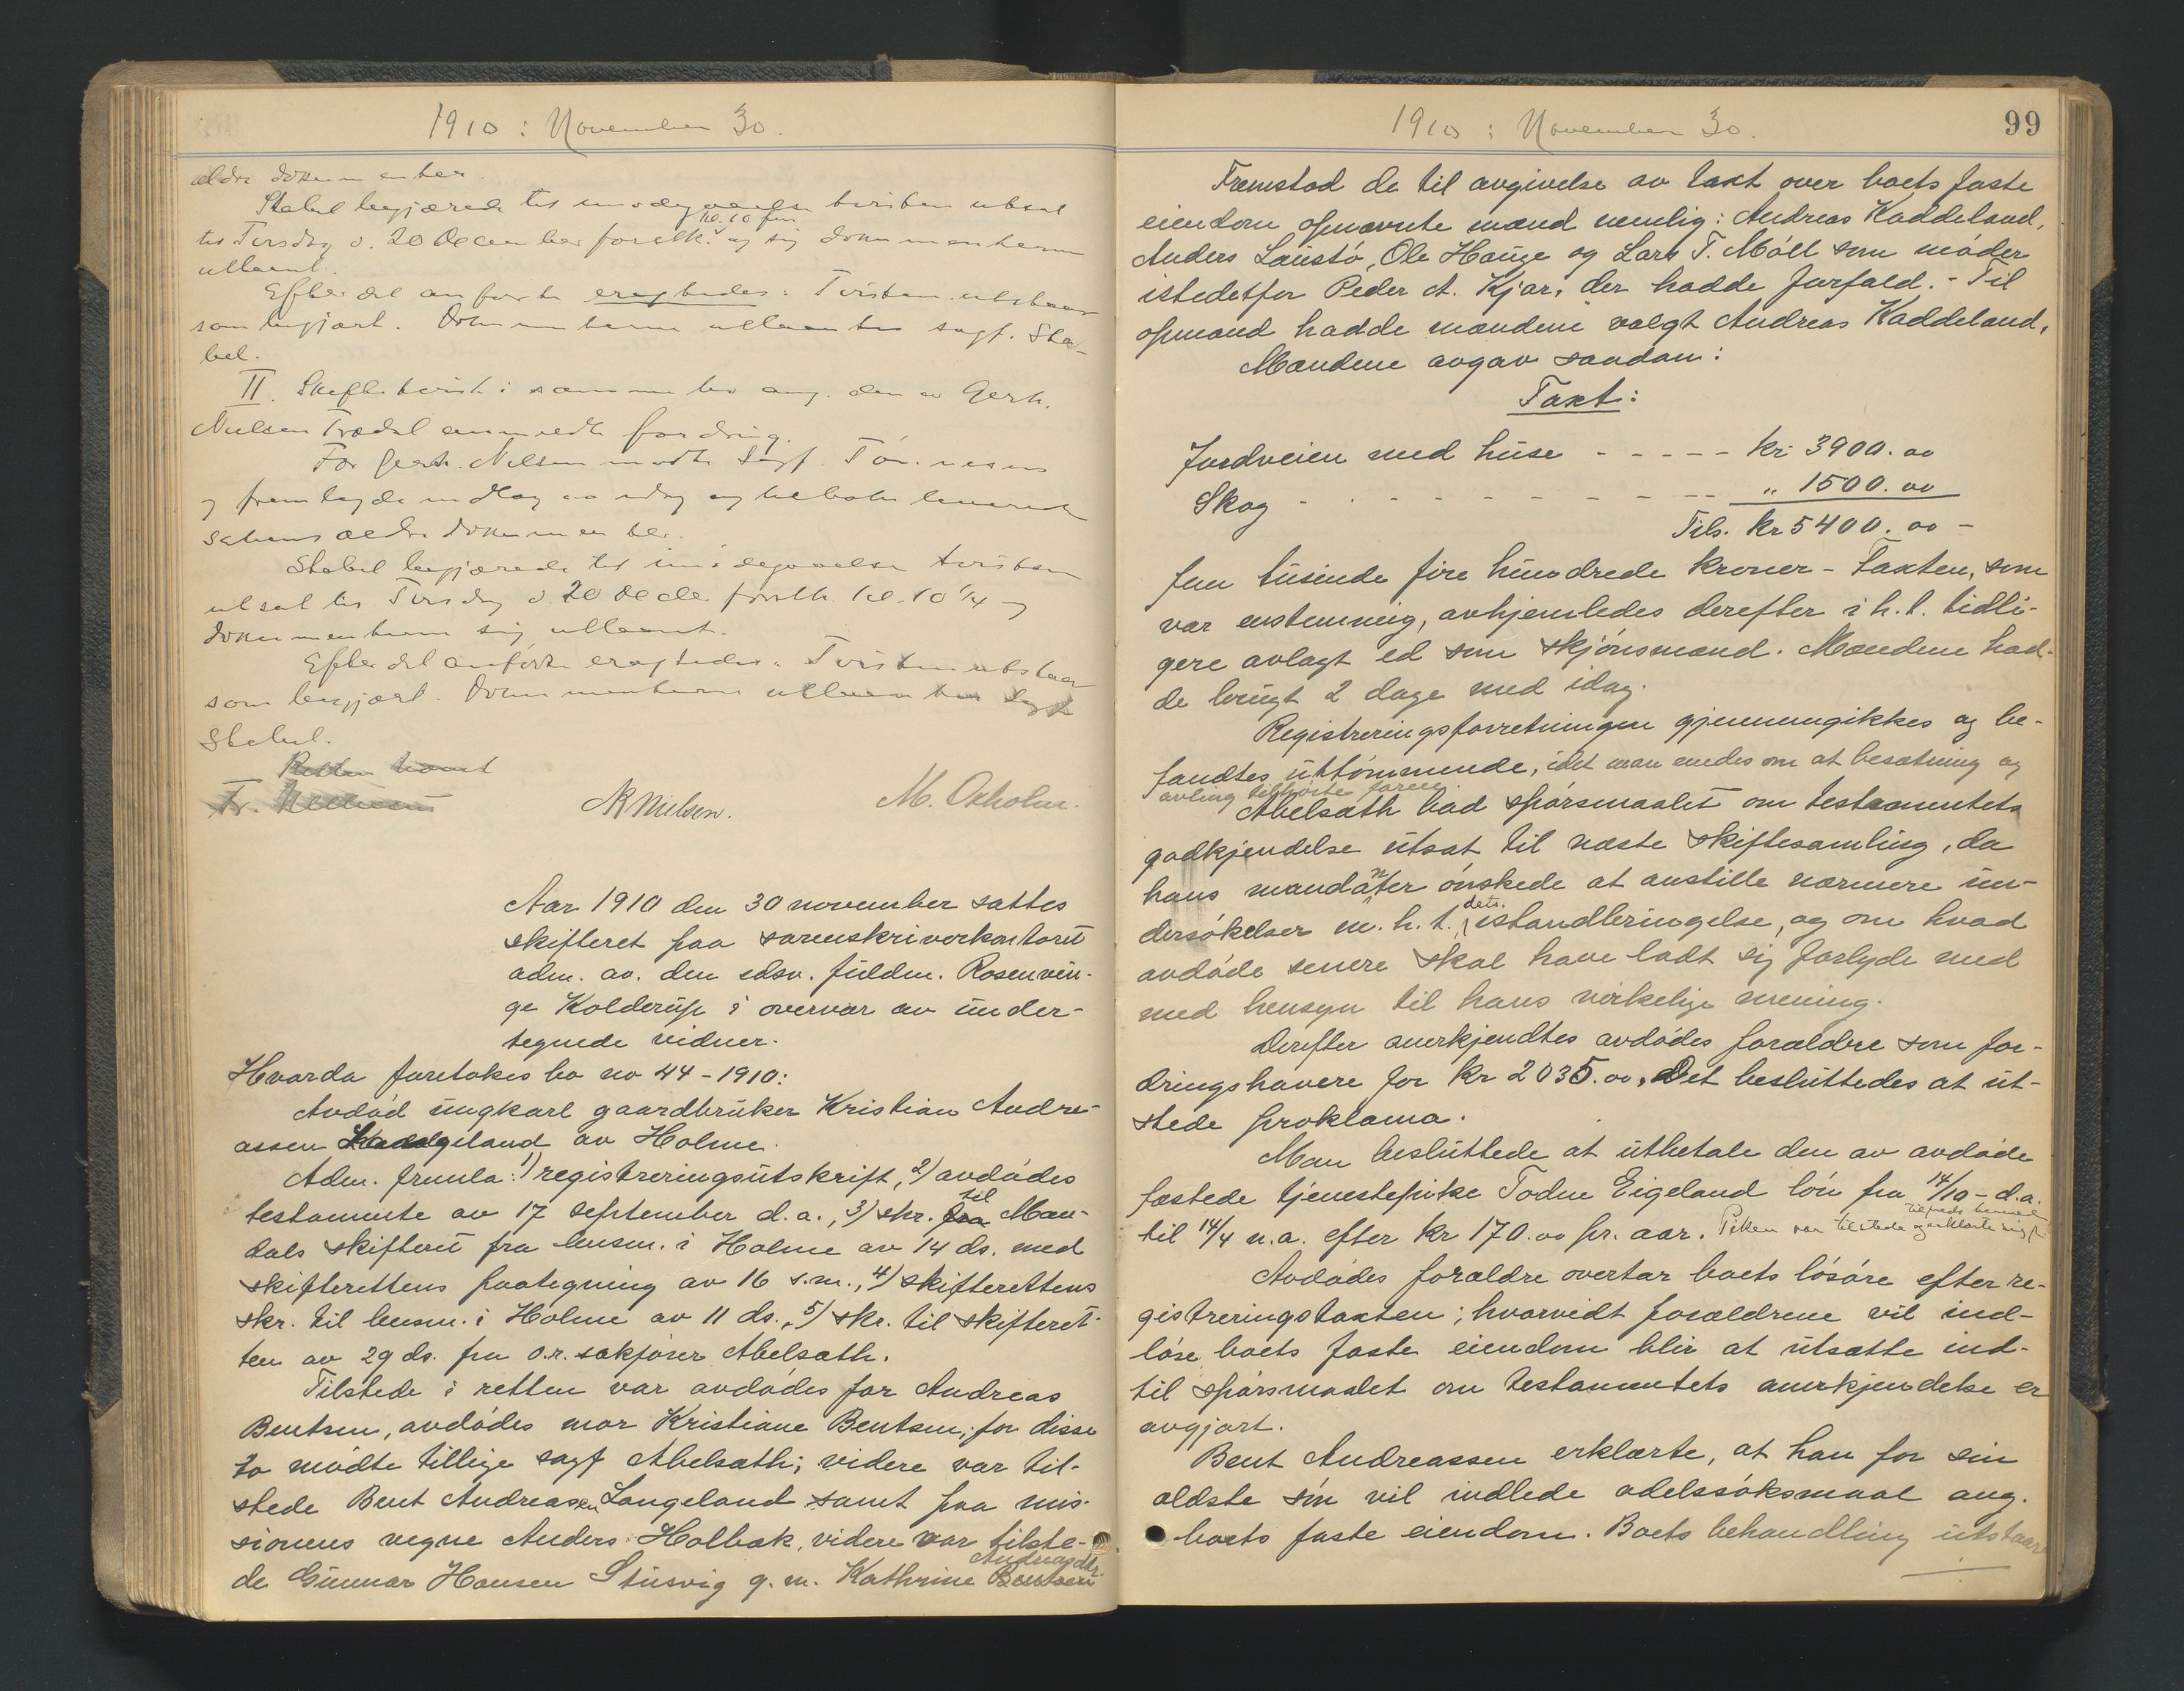 1910 : November 30.
ældre dokumenter.
Stabel begjærede til imødegaaelse tvisten utsat
kl. 10 fm
til Tirsdag d. 20 December førstk. og sig dokumenterne
utlaant.
Efter det anførte eragtedes: Tvisten utstaar
som begjært. Dokumenterne utlaantes sagf. Sta-
bel.
II. Skiftetvist i samme bo ang. den av Gerh.
Nielsen Trædal anmeldte fordring.
For Gerh. Nielsen mødte Sagf. Tønnesen
og fremlagde indlæg av idag og tilbakeleverede
sakens ældre dokumenter.
Stabel begjærede til imødegaaelse tvisten
utsat til Tirsdag d. 20 Decbr førstk. kl. 10 1/4 og
dokumenterne sig utlaant.
Efter det anførte eragtedes: Tvisten utstaar
som begjært. Dokumenterne utlaantes sagf
Stabel.
Retten hævet
Fr.
NNielsen. M. Oxholm.
Aar 1910 den 30 november sattes
skifteret paa sorenskriverkontoret
adm. av. den edsv. fuldm. Rosenvin-
ge Kolderup i overvær av under-
tegnede vidner.
Hvorda foretokes bo no 44 - 1910:
Avdød ungkarl gaardbruker Kristian Andre-
assen Langeland av Holme.
Adm. fremla: 1) registreringsutskrift, 2) avdødes
testamente av 17 september d.a., 3) skr. fra til Man-
dals skifteret fra lensm. i Holme av 14 ds. med
skifterettens paategning av 16 s.m., 4) skifterettens
skr. til lensm. i Holme av 11 ds., 5) skr. til skifteret-
ten av 29 ds. fra o.r. sakfører Abelsæth.
Tilstede i retten var avdødes far Andreas
Bentsen, avdødes mor Kristiane Bentsen; for disse
to mødte tillige sagf Abelsæth; videre var til-
stede Bent Andreasen Langeland samt paa mis-
sionens vegne Anders Holbæk, videre var tilste-
Andreasdtr.
de Gunnar Hansen Stusvig g.m. Kathrine Bentsen
1910 : November 30.
99
Fremstod de til avgivelse av taxt over boets faste
eiendom opnævnte mænd nemlig: Andreas Kaddeland,
Anders Laustø, Ole Hauge og Lars T. Møll som møder
istedetfor Peder A. Kjær, der hadde forfald. - Til
opmand hadde mændene valgt Andreas Kaddeland.
Mændene avgav saadan:
Taxt:
Jordveien med huse - - - - - kr. 3900.00
Skog - - - - - - - - - - „ 1500.00
Tils. kr 5400.00 -
fem tusinde fire hundrede kroner - Taxten, som
var enstemmig, avhjemledes derefter i h.t. tidli-
gere avlagt ed som skjønsmænd. Mændene had-
de brugt 2 dage med idag.
Registreringsforretningen gjennemgikkes og be-
fandtes uttømmende, idet man enedes om at besætning og
avling tilhørte
Abelsæth bad spørsmaalet om testamentets
godkjendelse utsat til næste skiftesamling, da
hans mandanter ønskede at anstille nærmere un-
dersøkelser m.h.t. dets istandbringelse, og om hvad
avdøde senere skal have ladt sig forlyde med
med hensyn til hans virkelige mening.
Derefter anerkjendtes avdødes forældre som for-
dringshavere for kr 2035.00. Det besluttedes at ut-
stede proklama.
Man besluttede at utbetale den av avdøde
fæstede tjenestepike Todne Eigeland løn fra 14/10 - d.a.
tilfreds hermed
til 14/4 n.a. efter kr 170.00 pr. aar. Piken var tilstede og erklærte sig
Avdødes forældre overtar boets løsøre efter re-
gistreringstaxten; hvorvidt forældrene vil ind-
løse boets faste eiendom blir at utsætte ind-
til spørsmaalet om testamentets anerkjendelse er
avgjørt.
Bent Andreassen erklærte, at han for sin
ældste søn vil indlede odelssøksmaal ang.
boets faste eiendom. Boets behandling utstaar